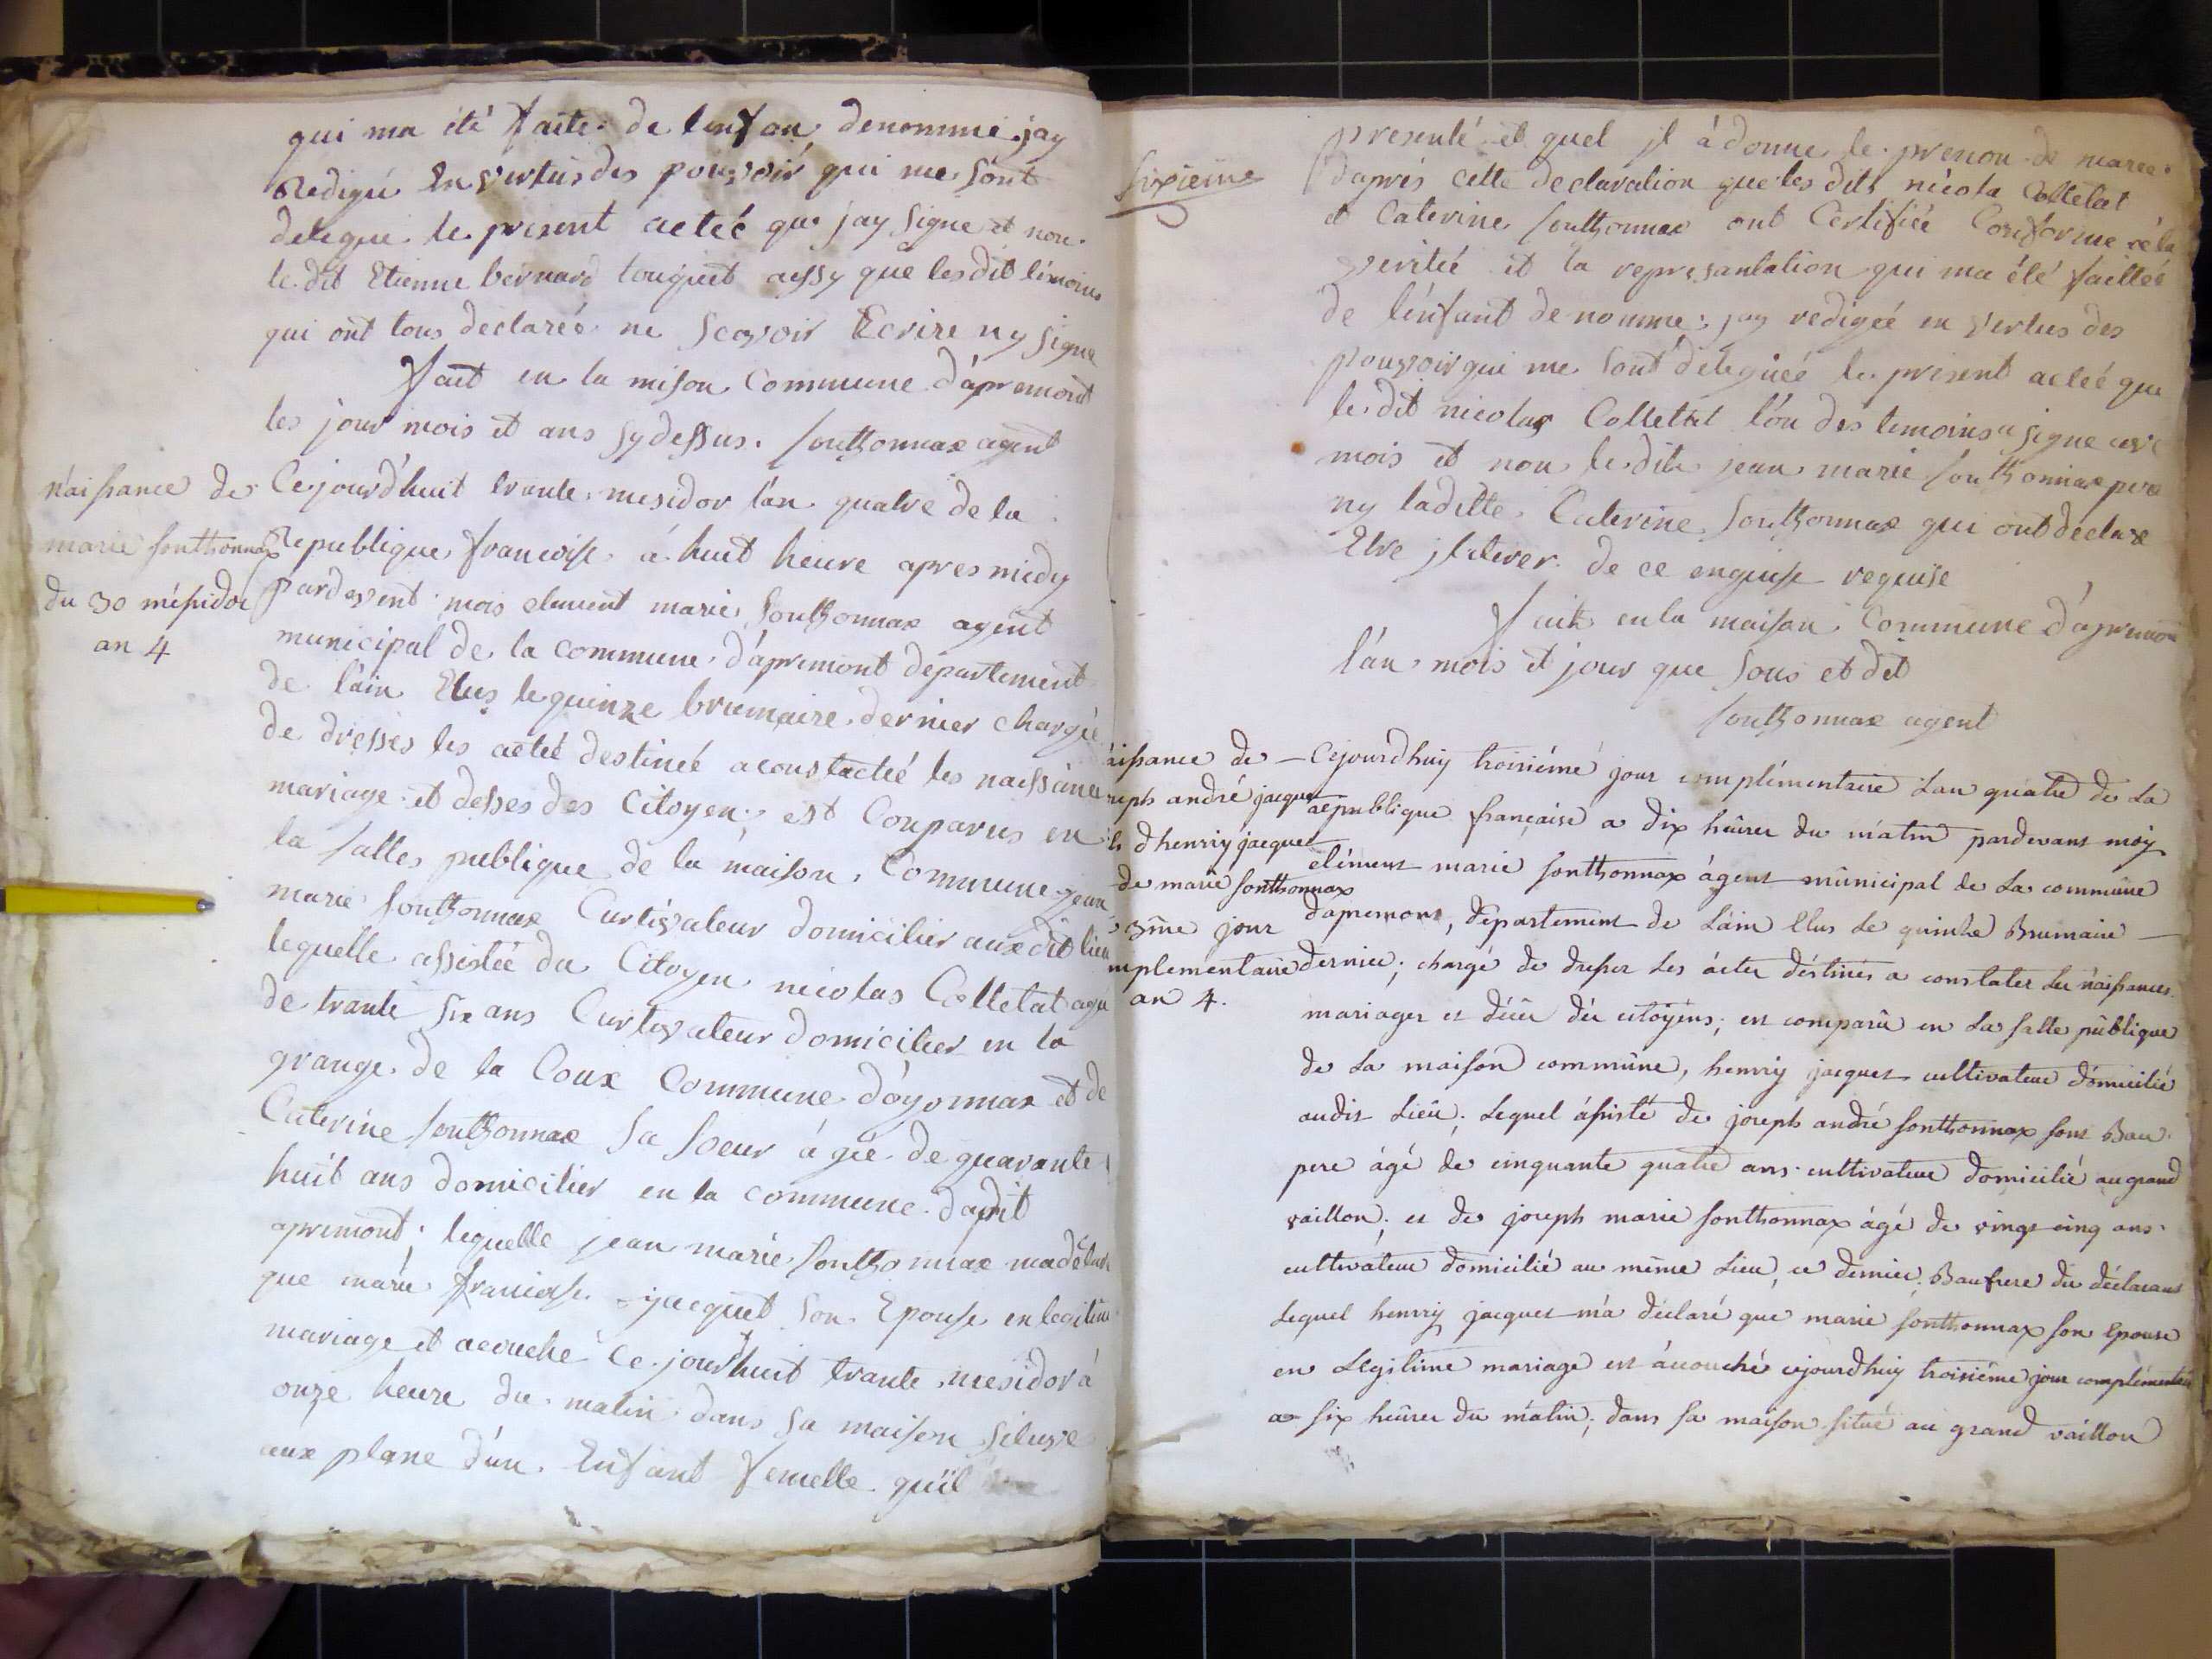 qui ma été faite de lenfan denommé jay
Redigée En vertus des pouvoir qui me sont
delegue le present acteé que jay signe et non
le dit Etienne bernard touquet aussy que les dit témoins
qui ont tous declareé ne scavoir Ecrire ny signe
fait en la mison Commune d'apremont
les jour mois et ans sy dessus. sonthonnax agent
naissance de
marie sonthonnax
du 30 méssidor
an 4
Cejourd'huit trante mesidor l'an quatre de la
Republique francoise á huit heure apres midy
pardevent mois clement marie sonthonnax agent
municipal de la commune d'apremont departement
de l'ain Elus le quinze brumaire dernier chargée
de dresses les acteé destineé a constacteé les naissance
mariage et desses des Citoyen; est Conparus en
la salles publique de la maison Commune jean
marie sonthonnax Curtivateur domicilier aux dit lieu
lequelle assisteé du Citoyen nicolas Colletat agé
de trante six ans Curtivateur domicilier en la
grange de la Coux Commune d'oyonnax et de
Caterine sonthonnax sa soeur á geé de quarante
huit ans domicilier en la commune dudit
apremont; lequelle jean marie sonthonnax ma déclaré
que marie francoise jacquet son Epouse en legitime
mariage et acouché ce jourd'huit trante mesidor á
onze heure du matin dans sa maison situve
aux plane d'un Enfant femelle qu'il
sixieme
presenté et quel jl á donne le prenon de marie
d'aprés cette declaration que les dits nicola Colletat
et Caterine sonthonnax ont Certifiée Conforme á la
veriteé et la representation qui ma été faitteé
de l'enfant denomme jay redigeé en vertus des
pouvoir qui me sont delegueé le present acteé que
le dit nicolas Colletat l'un des temoins a signe avec
mois et non le dite jean marie sonthonnax pere
ny laditte Caterine sonthonnax qui ont declare
Etre jlliterer de ce enquise requise
fait en la maison Commune d'apremon
l'an mois et jour que sous et dit
sonthonnax agent
aissance de
seph andré jacquet
ls d'henry jacquet
de marie sonthonnax
3me jour
mplementaire
an 4.
Cejourdhuy troisiéme jour complémentaire Lan quatre de La
republique française a dix hêures du mátin pardevant moy
clément marie sonthonnax ágent múnicipal de La commune
dapremont, département de L'ain Elus Le quinze Brumaire
dernier; chargé de dresser Les áctes déstinés a constater Les náissances
mariages et décès dés citoyéns; est comparû en La salle públique
de La maison commúne, henry jacquet cultivateur domicilié
audit Lieu; Lequel ássisté de joseph andré sonthonnax sont Bau
pere ágé de cinquante quatre ans cultivateur domicilié au grand
vaillon; et de joseph marie sonthonnax ágé de vingt cinq ans
cultivateur domicilié au même Lieu, ce dernier Baufrere du déclarant
Lequel henry jacquet m'a déclaré que marie sonthonnax son Epouse
en Légitime mariage est ácouché cejourdhuy troisiéme jour complémentaire
a six heures du mátin; dans sa maison situé au grand váillon